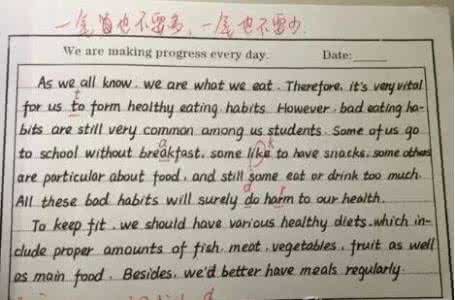 一尾首也不要多,一尾也不要少
We are making progress every day. Date:
As we all know, we are what we eat. Therefore, it's very vital
for us to form healthy eating habits. However, bad eating ha-
bits are still very common among us students. Some of us go
to school without breakfast, some like to have snacks, some others
are particular about food, and still some eat or drink too much.
All these bad habits will surely do harm to our health.
To keep fit, we should have various healthy diets, which in-
clude proper amounts of fish, meat, vegetables, fruit as well
as main food. Besides, we'd better have meals regularly.